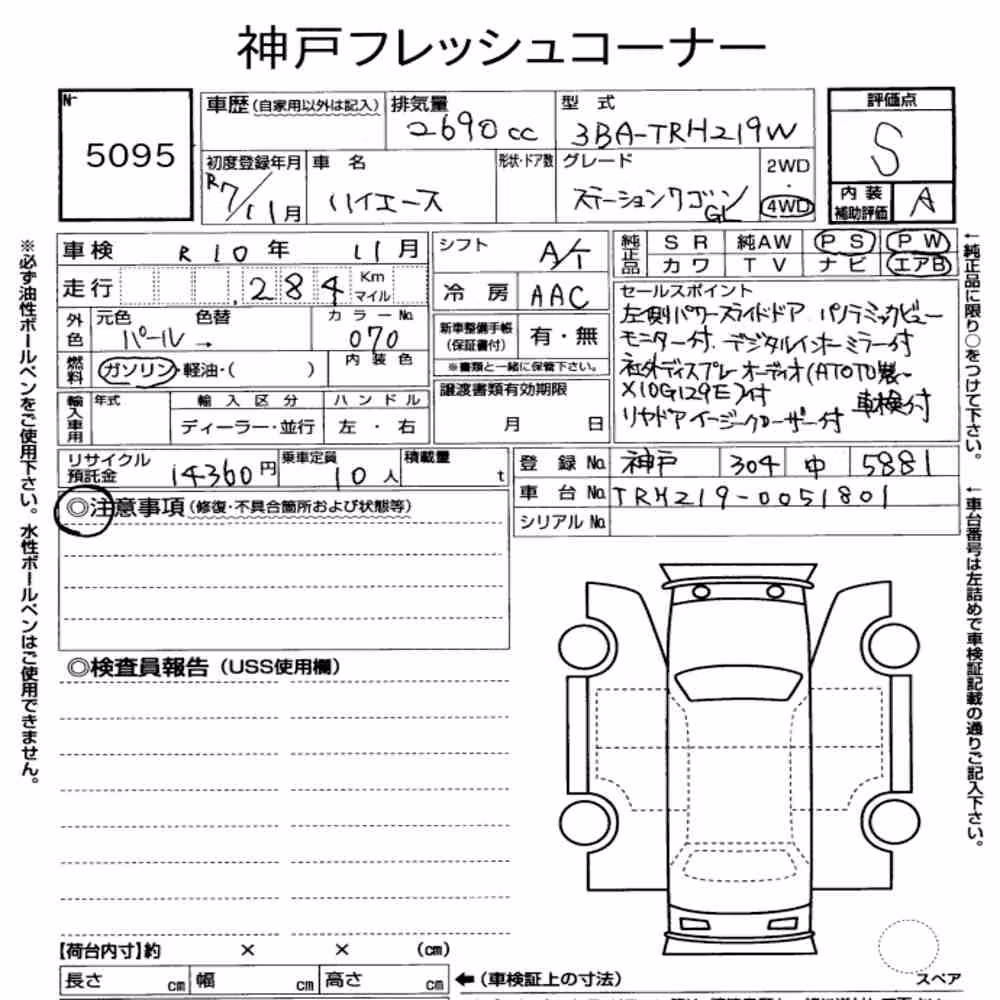 神戸フレッシュコーナー
No 5095
車歴(自家用以外は記入) 排気量 2690cc 型式 3BA-TRH219W
初度登録年月 R7/11月 車名 ハイエース 形状・ドア数 グレード ステーションワゴン GL 2WD・4WD
評価点 S
内装補助評価 A
車検 R10年 11月
走行 284 Km マイル
外色 元色 パール → 色替 カラーNo 070
内装色
燃料 ガソリン・軽油・( )
輸入車用 年式 輸入区分 ディーラー・並行 ハンドル 左・右
シフト A/T
冷房 AAC
新車整備手帳(保証書付) 有・無
※書類と一緒に保管下さい。
譲渡書類有効期限
月 日
純正品 SR 純AW PS PW
カワ TV ナビ エアB
セールスポイント
左側パワースライドドア パノラミックビュー
モニター付 デジタルインナーミラー付
社外ディスプレイオーディオ(ATOTO製
X10G129E)付 車検付
リヤドアイージークローザー付
リサイクル預託金 14360円 乗車定員 10人 積載量 t
登録No 神戸 304 ゆ 5881
車台No TRH219-0051801
シリアルNo
◎注意事項(修復・不具合箇所および状態等)
◎検査員報告(USS使用欄)
【荷台内寸】約 × × (cm)
長さ cm 幅 cm 高さ cm ←(車検証上の寸法)
スペア
※必ず油性ボールペンをご使用下さい。水性ボールペンはご使用できません。
←純正品に限り○をつけて下さい。
←車台番号は左詰めで車検証記載の通りご記入下さい。